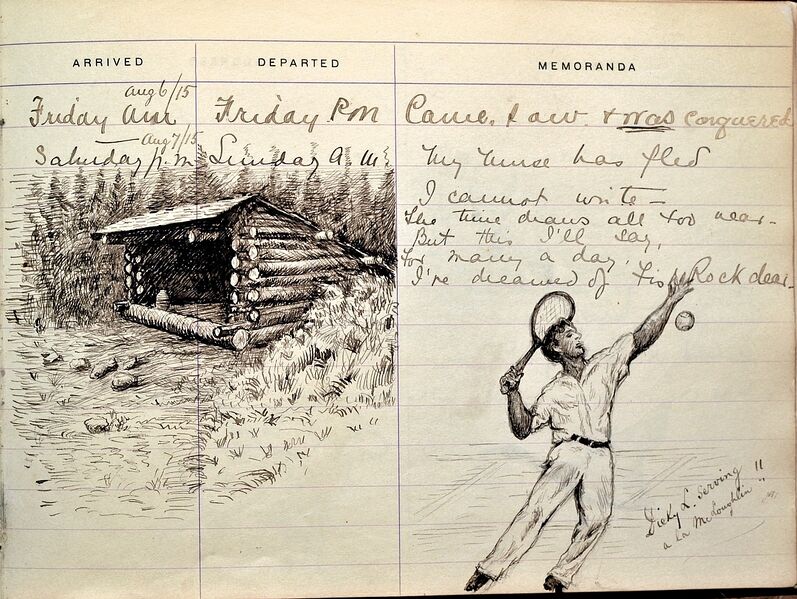 ARRIVED DEPARTED MEMORANDA
Aug 6/15
Friday am Friday P.m Came, saw & was conquered
Aug 7/15
Saturday p.m. Sunday A.M.
My muse has fled
I cannot write –
The time draws all too near.
But this I'll say,
For many a day,
I've dreamed of Fish Rock dear.
Dicky L. serving
a la McLoughlin !!